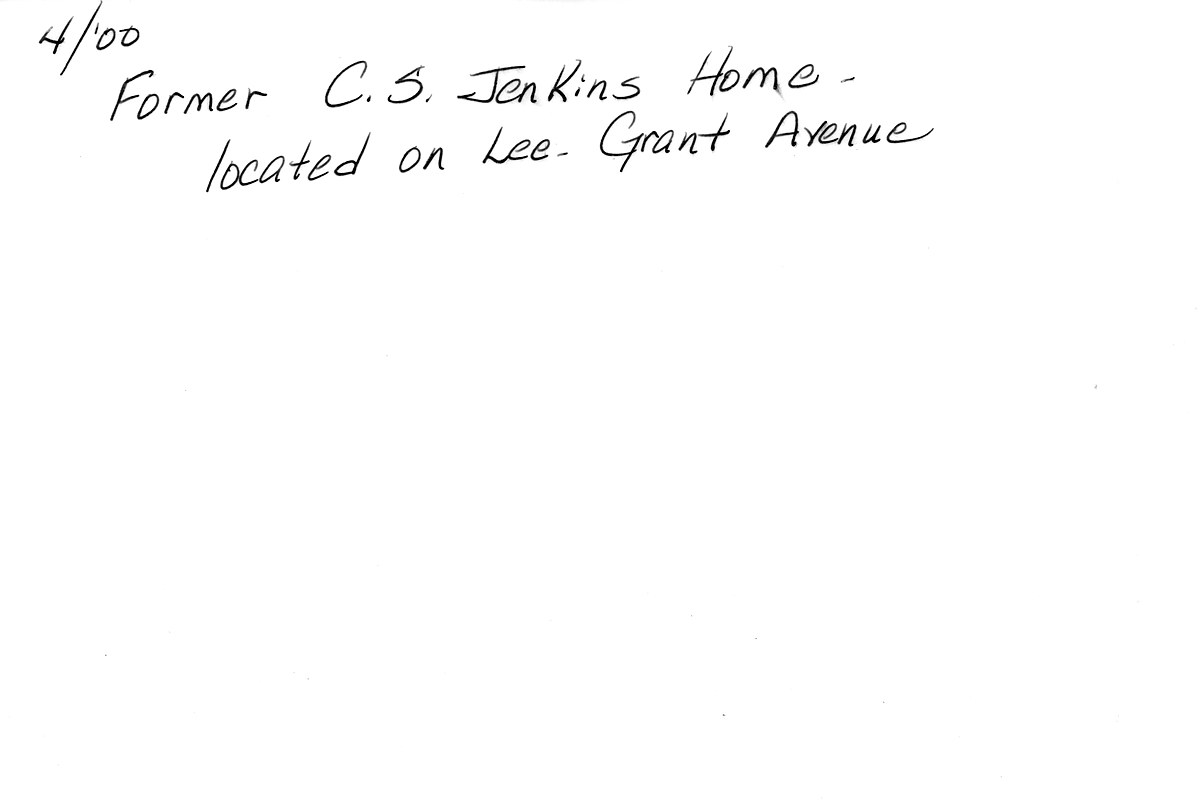 4/'00
Former C.S. Jenkins Home -
located on Lee-Grant Avenue